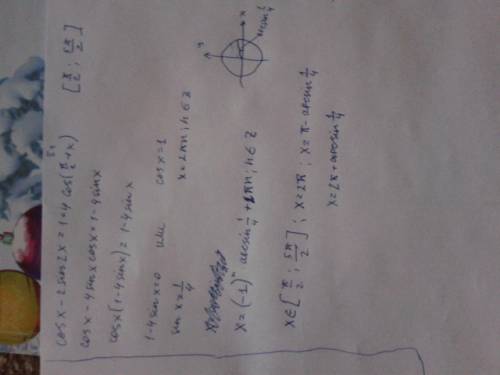 cos x - 2 sin 2x = 1 + 4 cos(π/2 + x) [π/2; 5π/2]
cos x - 4 sin x cos x = 1 - 4 sin x
cos x (1 - 4 sin x) = 1 - 4 sin x
1 - 4 sin x = 0 или cos x = 1
sin x = 1/4 x = 2πn; n ∈ Z
x = (-1)ⁿ arcsin 1/4 + πn; n ∈ Z
arcsin 1/4
x ∈ [π/2; 5π/2]; x = 2π; x = π - arcsin 1/4
x = 2π + arcsin 1/4